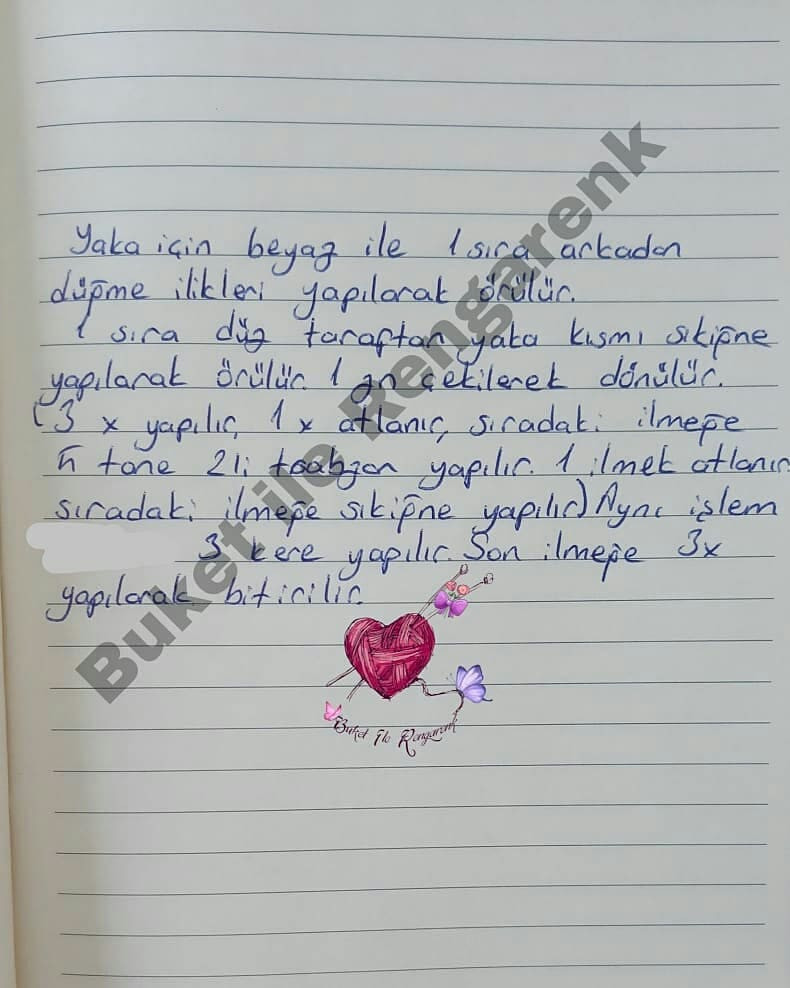 Yaka için beyaz ile 1 sıra arkadan
düğme ilikleri yapılarak örülür.
1 sıra düz taraftan yaka kısmı sıkiğne
yapılarak örülür. 1 zn çekilerek dönülür.
(3 x yapılır, 1x atlanır, sıradaki ilmeğe
tane 2li trabzan yapılır. 1 ilmek atlanır
sıradaki ilmeğe sıkiğne yapılır) Aynı işlem
3 kere yapılır. Son ilmeğe 3x
yapılarak bitirilir.
Buket ile Rengarenk
Buket ile Rengarenk